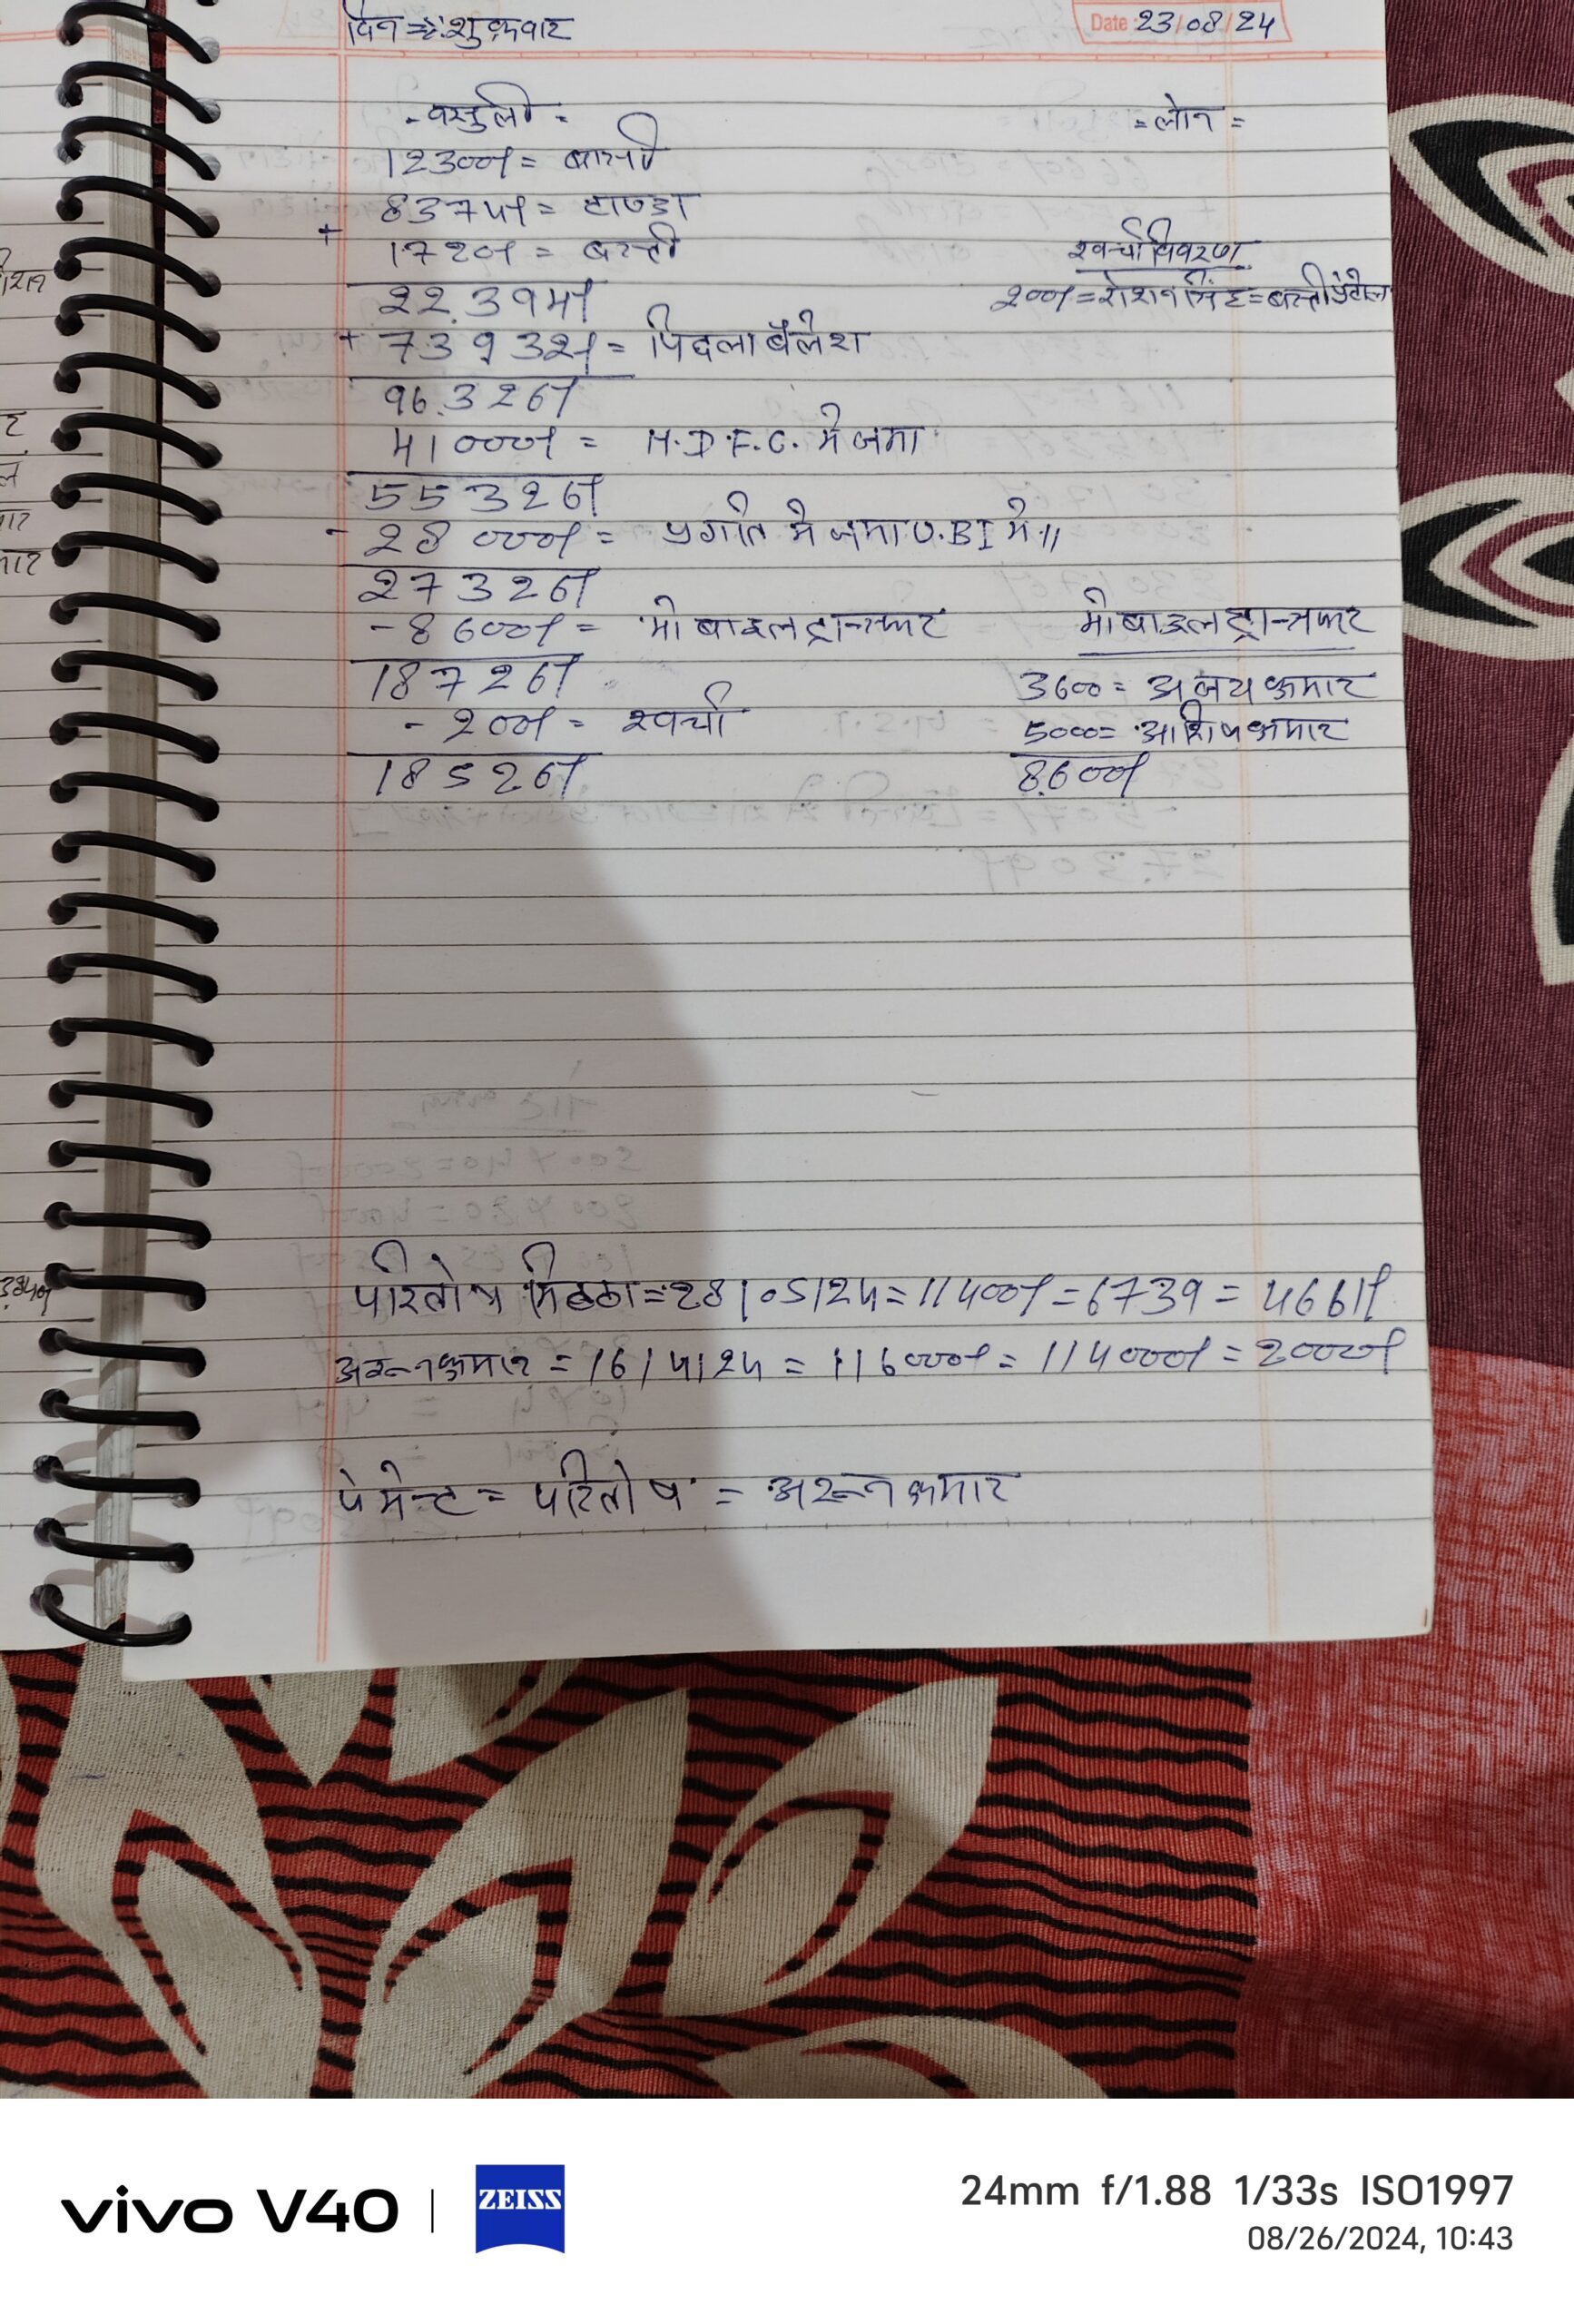 दिन => शुक्रवार
Date 23/08/24
- वसुली =
= लोन =
12300/ = बासी
8374/ = टाण्डा
+ 1720/ = बस्ती
खर्चा विवरण
22.394/
200/ = रोशन सिंह = बस्ती पेट्रोल
+ 73932/ = पिछला बैलेश
96.326/
41000/ = H.D.F.C. मे जमा
55326/
- 28000/ = प्रगति मे जमा U.BI मे॥
27326/
- 8600/ = मोबाइल ट्रान्सफर
मोबाइल ट्रान्सफर
18726/
3600 = अजय कुमार
- 200/ = खर्चा
5000 = आशिष कुमार
18526/
8.600/
परितोष = 28/05/24 = 11400/ = 6739 = 4661/
कुमार = 16/4/24 = 116000/ = 114000/ = 2000/
पेमेन्ट = परितोष = कुमार
vivo V40
ZEISS
24mm f/1.88 1/33s ISO1997
08/26/2024, 10:43